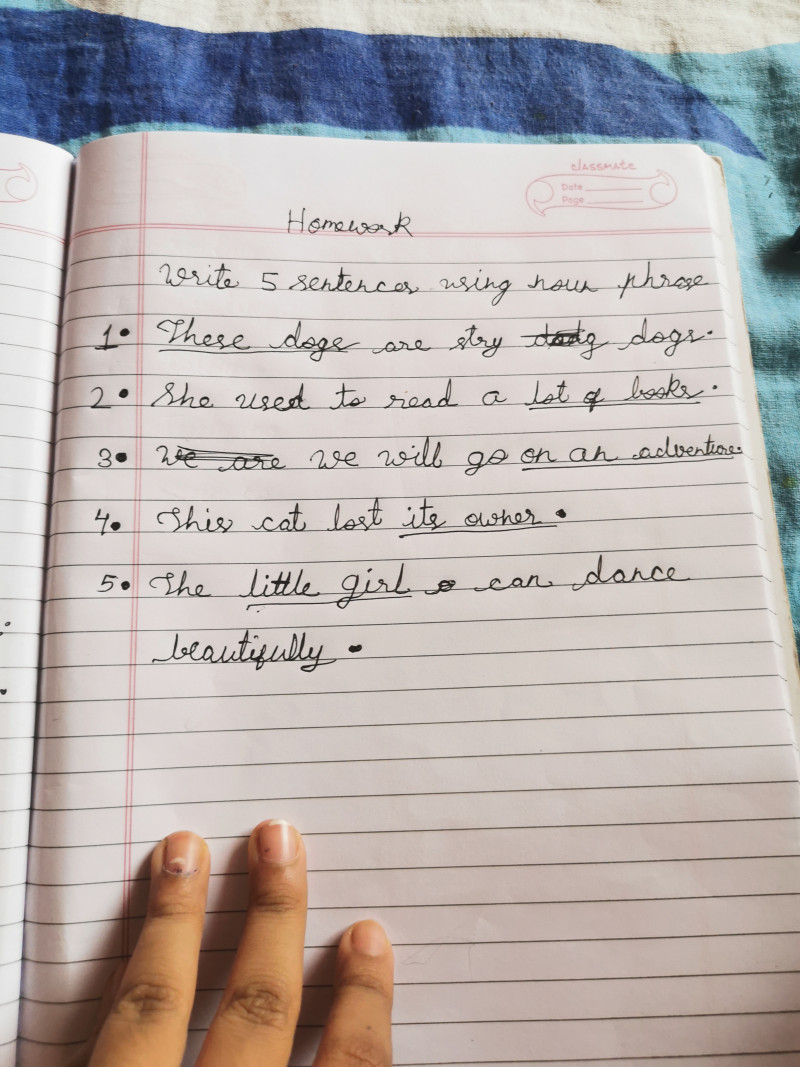 classmate
Date
Page
Homework
Write 5 sentences using noun phrase
1. These dogs are stry dogs.
2. She used to read a lot of books.
3. We are we will go on an adventure.
4. This cat lost its owner.
5. The little girl can dance
beautifully.